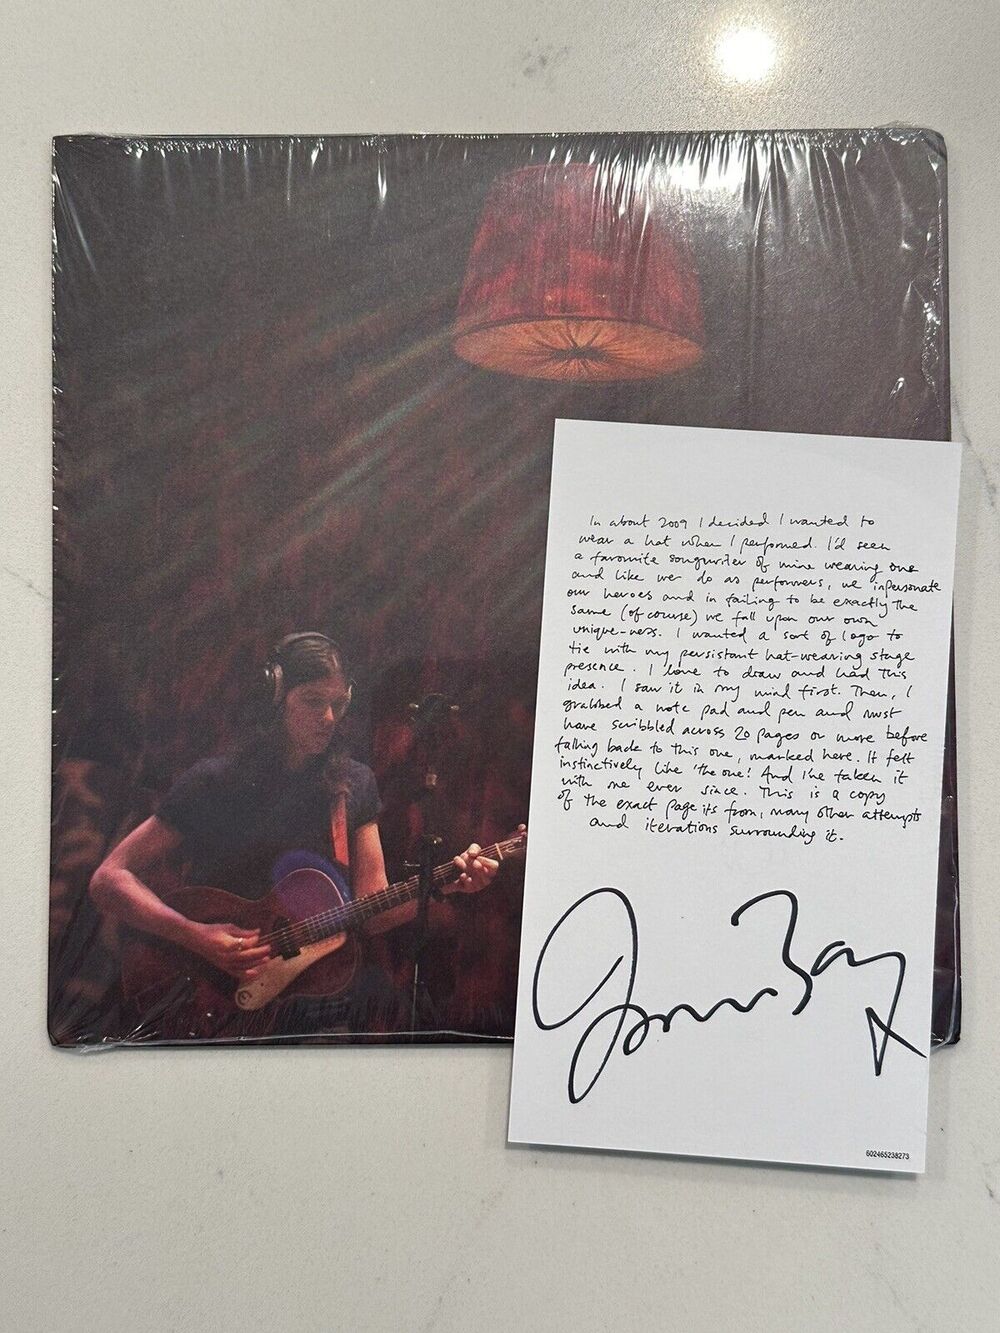 In about 2009 I decided I wanted to
wear a hat when I performed. I'd seen
a favourite songwriter of mine wearing one
and like we do as performers, we impersonate
our heroes and in failing to be exactly the
same (of course) we fall upon our own
unique-ness. I wanted a sort of logo to
tie with my persistant hat-wearing stage
presence. I love to draw and had this
idea. I saw it in my mind first. Then, I
grabbed a note pad and pen and must
have scribbled across 20 pages or more before
falling back to this one, marked here. It felt
instinctively like 'the one'! And I've taken it
with me ever since. This is a copy
of the exact page its from, many other attempts
and iterations surrounding it.
James Bay X
602465238273